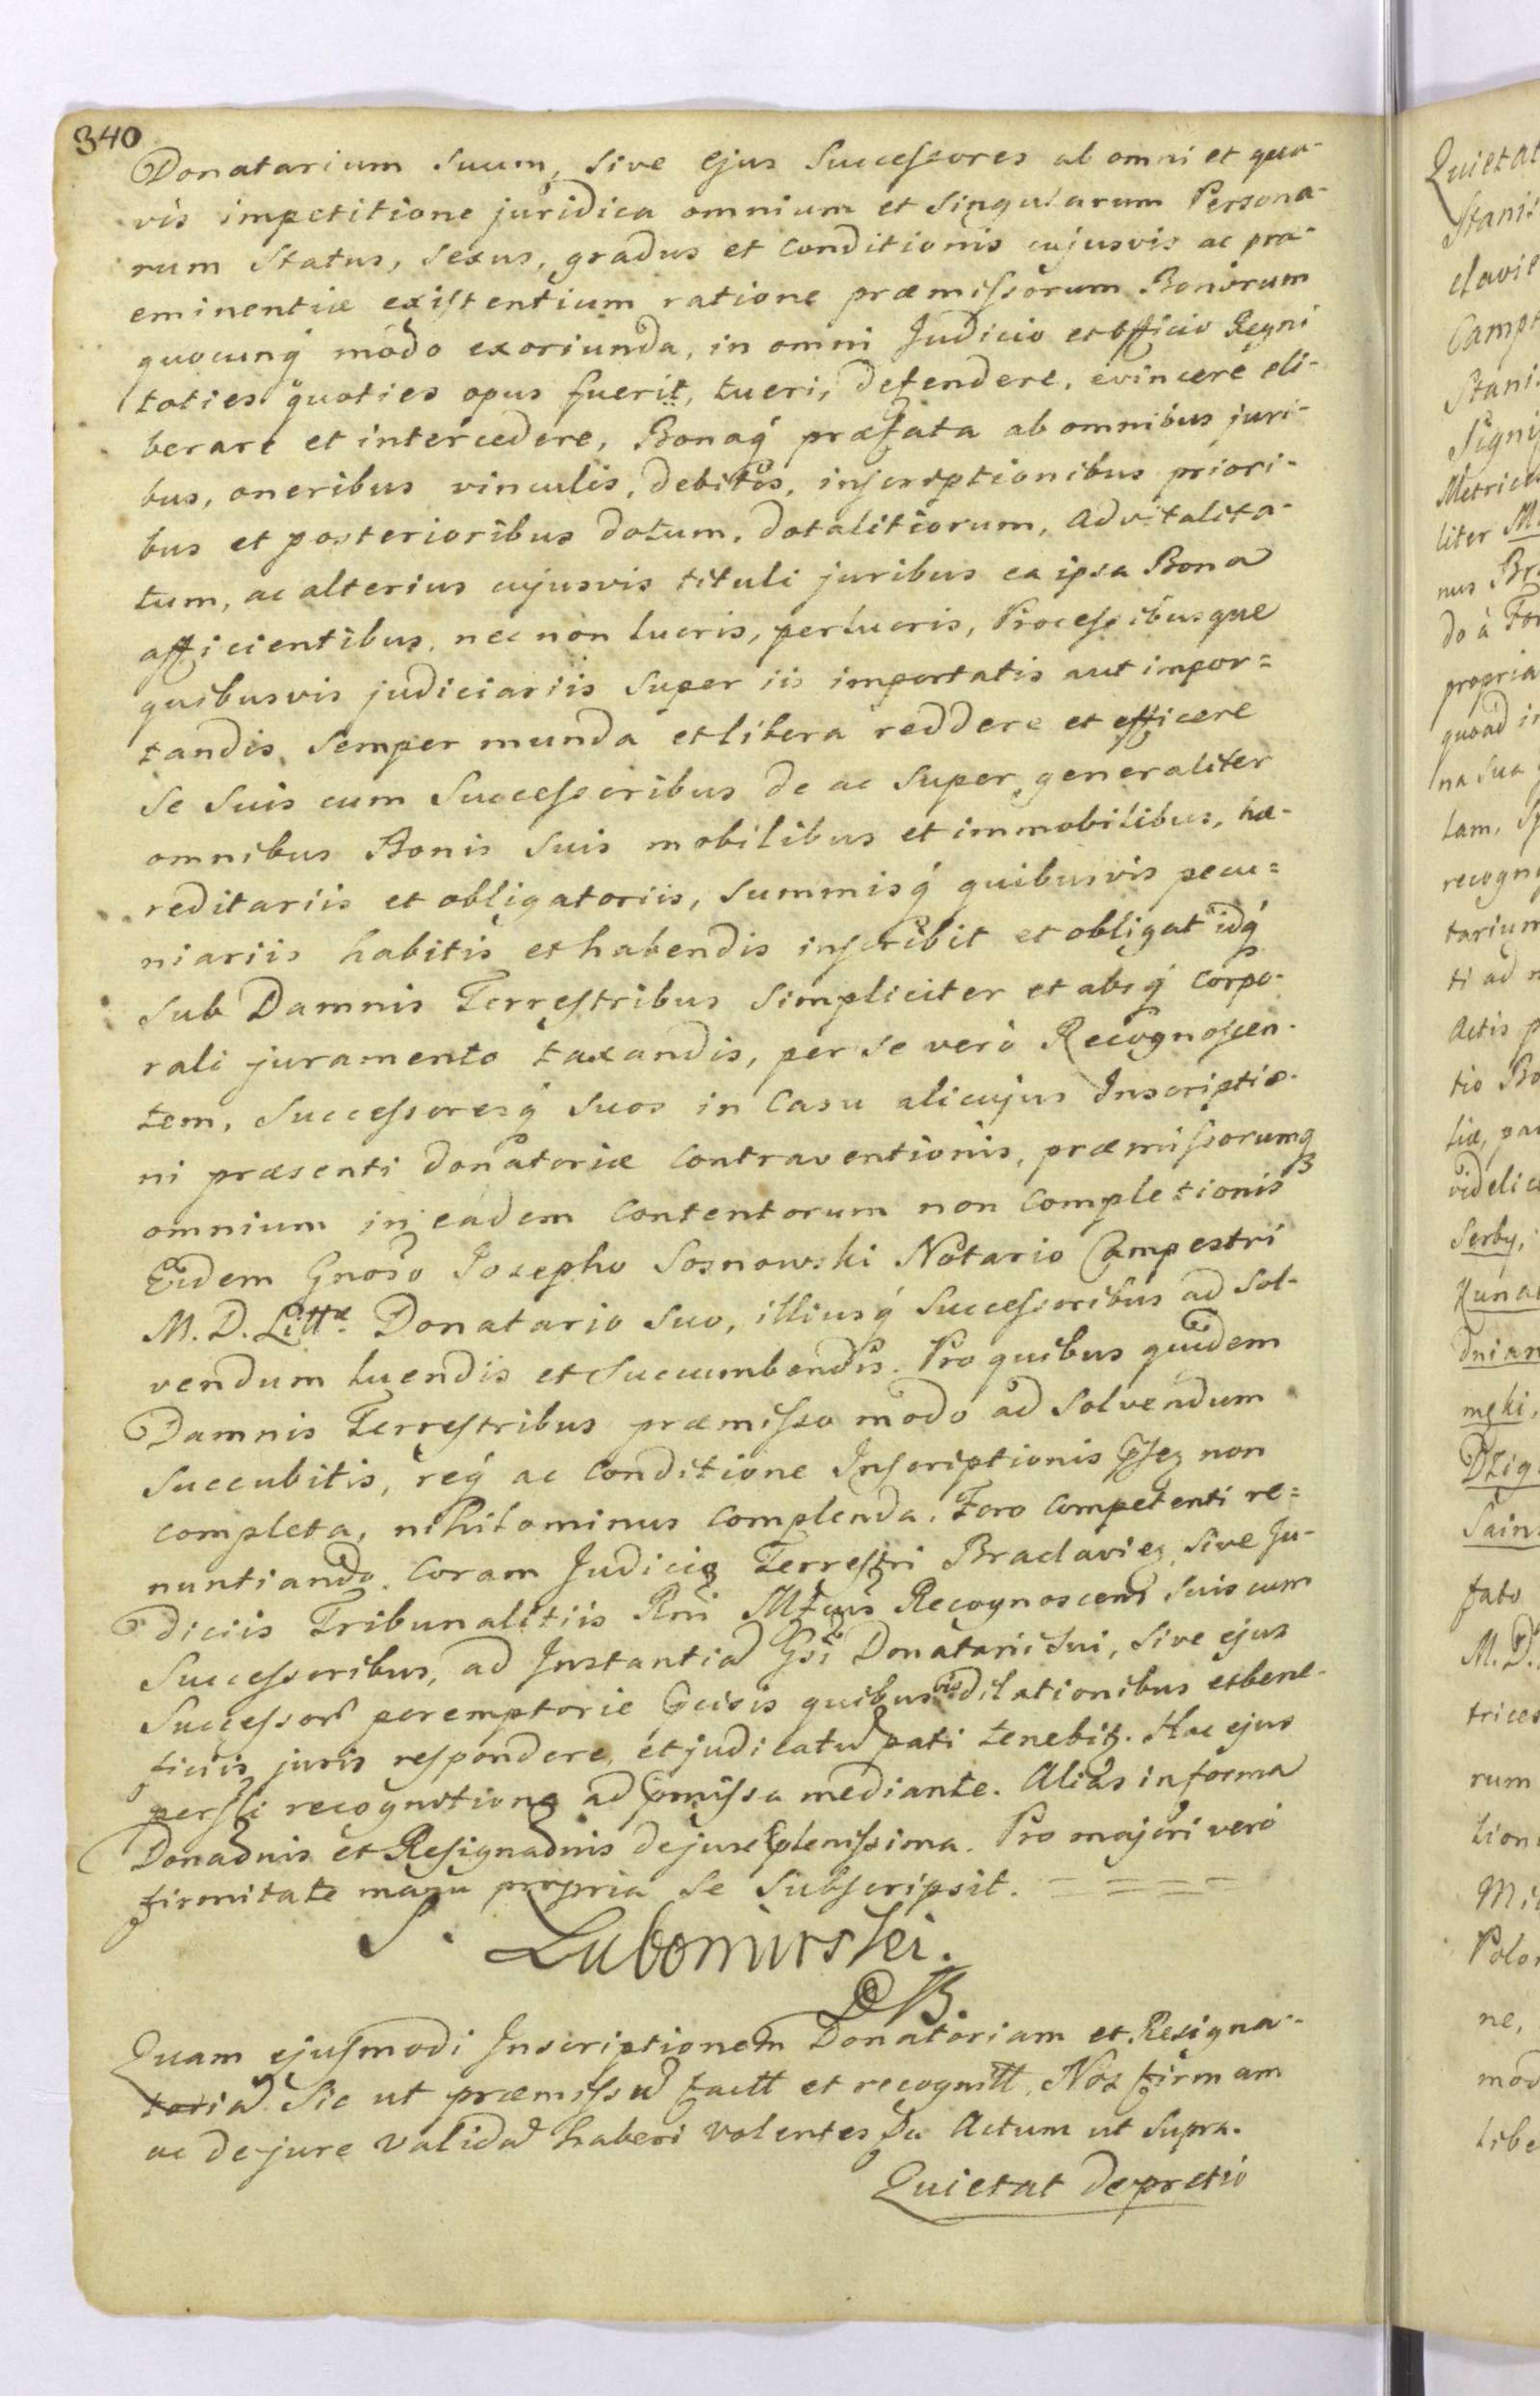 340
Donatarium suum, sive ejus Successores ab omni et qua-
vis impetitione juridica omnium et singularum Persona-
rum status, sexus, gradus et conditionis cujusvis ac præ-
eminentiæ existentium ratione præmissorum Bonorum
quocunq́ modo exoriunda, in omni Judicio et Officio Regni
toties quoties opus fuerit, tueri, defendere, evincere eli-
berare et intercedere, Bonaq́ præfata ab omnibus juri-
bus, oneribus vinculis, debitis, inscriptionibus priori-
bus et posterioribus dotum, dotalitiorum, advitalita-
tum, ac alterius cujusvis tituli juribus ea ipsa Bona
afficientibus, nec non lucris, perlucris, Processibusque
quibusvis judiciariis super iis importatis aut impor=
tandis, semper munda et libera reddere et efficere
se suis cum Successoribus de ac super generaliter
omnibus Bonis suis mobilibus et immobilibus, hæ-
reditariis et obligatoriis, summisq́ quibusvis pecu=
niariis habitis et habendis inscribit et obligat idq́
sub Damnis Terrestribus simpliciter et absq́ corpo-
rali juramento taxandis, per se verò Recognoscen-
tem, Successoresq́ suos in Casu alicujus Inscriptio-
ni præsenti donatoriæ Contraventionis, præmissorumq
omnium in eadem Contentorum non Completionis
Eidem Gnoso Josepho Sosnowski Notario Campestri
M. D. Littæ Donatario suo, illiusq́ Successoribus ad sol-
vendum luendis et succumbendis. Pro quibus quidem
Damnis Terrestribus præmisso modo ad solvendum
succubitis, req́ ac Conditione Inscriptionis non
completa, nihilominus complenda. Foro Competenti re=
nuntiando. Coram Judicio Terrestri Braclavien sive Ju-
diciis Tribunalitiis Rni Recognoscens suis cum
Successoribus, ad Instantia Gsi Donatarii sui, sive ejus
Successor peremptorie quibusvis dilationibus et bene-
ficiis juris respondere, et judicatu pati tenebit. Hac ejus
recognitione ad mediante. Alias in forma
Donaonis et Resignaonis de jure plenissima. Pro majori verò
firmitate manu propria se subscripsit. — = = = —
S. Lubomirski.
Quam ejusmodi Inscriptionem Donatoriam et Resigna-
toria sic ut præmissu factt et recognitt. Nos firmam
ac de jure valida haberi volentes Actum ut supra.
Quietat de pretio
Quietat
Stanis
clavie
Camp
Stani
Signi
Metrices
liter M
nus Br
do à For
propria
quoad in
na sua
tam, Sp
recogn
tarium
ti ad
Actis p
tio Bo
liæ, pa
videlic
Serby,
Kuna
dnian
męki,
Dzig
Sain
fato
M. D.
trices
rum
tion
Mi
Polon
ne,
mod
libe